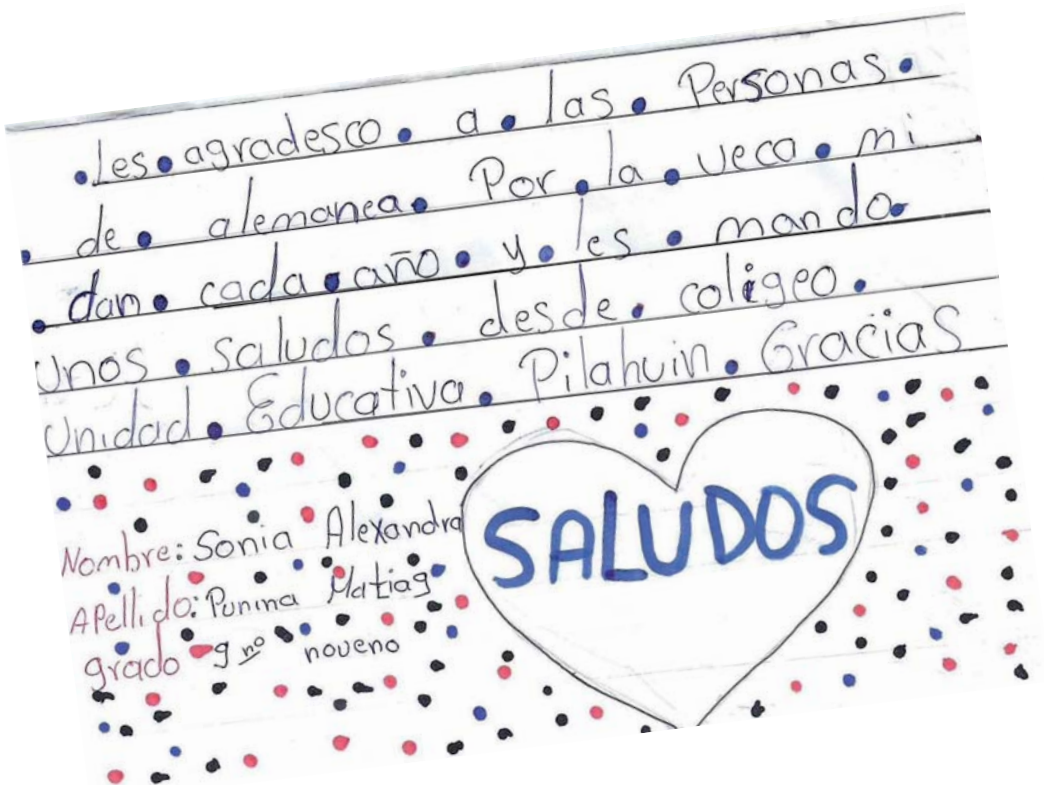 .les.agradesco.a.las.Personas.
.de.alemanea.Por.la.veca.mi
.dan.cada.año.y.les.mando.
Unos.saludos.desde.coligeo.
Unidad.Educativa.Pilahuin.Gracias
Nombre: Sonia Alexandra
Apellido: Punina Matiag
grado 9no noveno
SALUDOS